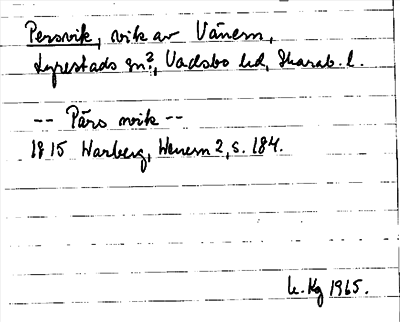 Persvik, vik av Vänern,
Lyrestads sn?, Vadsbo hd, Skarab. l.
-- Pärs wik --
1815 Warberg, Wenern 2, s. 184.
L. Kg 1965.